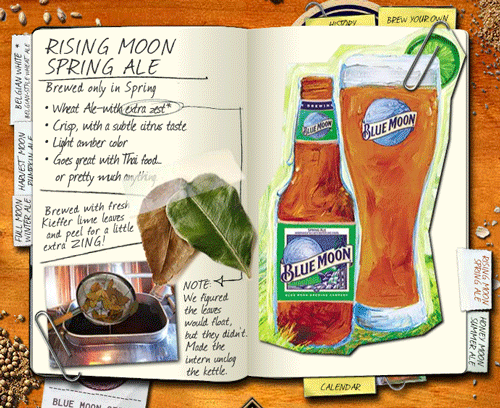 HISTORY
BREW YOUR OWN
BELGIAN WHITE *
BELGIAN-STYLE WHEAT ALE
HARVEST MOON
PUMPKIN ALE
FULL MOON
WINTER ALE
RISING MOON
SPRING ALE
Brewed only in Spring
• Wheat Ale with extra zest*
• Crisp, with a subtle citrus taste
• Light amber color
• Goes great with Thai food...
or pretty much anything
Brewed with fresh
Kieffer lime leaves
and peel for a little
extra ZING!
NOTE:
We figured
the leaves
would float,
but they didn't.
Made the
intern unclog
the kettle.
BLUE MOON
BLUE MOON
SPRING ALE
BLUE MOON
BLUE MOON BREWING COMPANY
RISING MOON
SPRING ALE
HONEY MOON
SUMMER ALE
CALENDAR
BLUE MOON